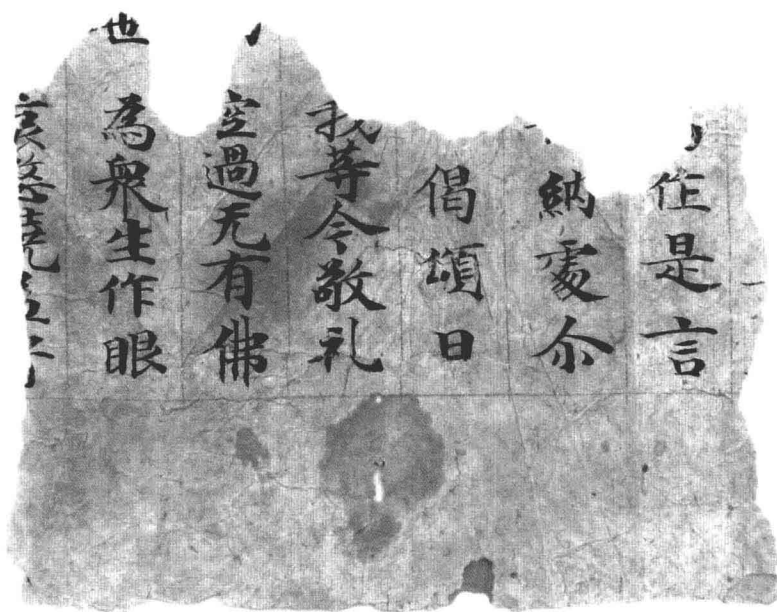 作是言
納處尒
偈頌曰
我等今敬礼
空過无有佛
世 為衆生作眼
哀愍饒益者